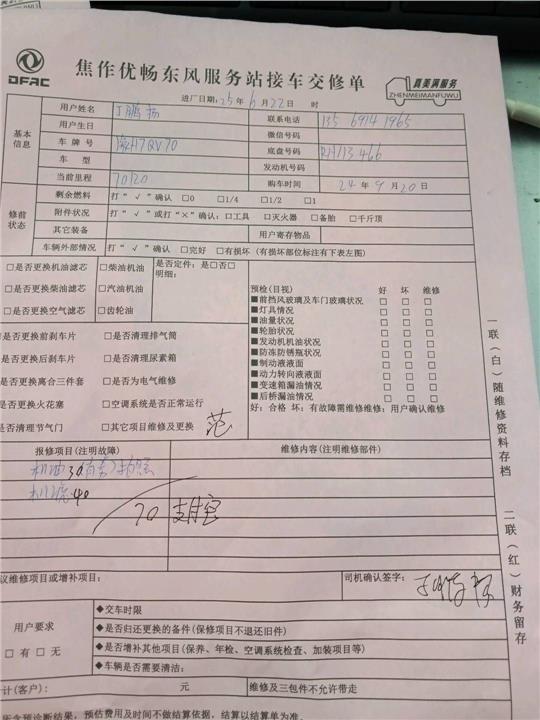 DFAC
焦作优畅东风服务站接车交修单
真美满服务
ZHENMEIMANFUWU
进厂日期:25年6月22日 时
基本信息
用户姓名 丁鹏杨 联系电话 135 6914 1965
用户生日 微信号码
车牌号 豫H7QV70 底盘号码 RH113466
车型 发动机号码
当前里程 70120 购车时间 24年9月20日
修前状态
剩余燃料 打“√”确认 □0 □1/4 □1/2 □1
附件状况 打“√”或打“×”确认:□工具 □灭火器 □备胎 □千斤顶
其它装备 用户寄存物品
车辆外部情况 打“√”确认 □完好 □有损坏 (有损坏部位标注有下表左图)
□是否更换机油滤芯 □柴油机油 是否定件:是□否□
明细:
□是否更换柴油滤芯 □汽油机油
□是否更换空气滤芯 □齿轮油
预检(目视) 好 坏 维修
■前挡风玻璃及车门玻璃状况 □ □ □
■灯具情况 □ □ □
■油量状况 □ □ □
■轮胎状况 □ □ □
■发动机机油状况 □ □ □
■防冻防锈瓶状况 □ □ □
■制动液液面 □ □ □
■动力转向液液面 □ □ □
■变速箱漏油情况 □ □ □
■后桥漏油情况 □ □ □
好:合格 坏:有故障需维修维修:用户确认维修
是否更换前刹车片 □是否清理排气筒
是否更换后刹车片 □是否清理尿素箱
是否更换离合三件套 □是否为电气维修
是否更换火花塞 □空调系统是否正常运行
是否清理节气门 □其它项目维修及更换 范
报修项目(注明故障) 维修内容(注明维修部件)
机油30
机滤40
70 支付宝
议维修项目或增补项目: 司机确认签字:
用户要求
□有 □无
◆交车时限
◆是否归还更换的备件(保修项目不退还旧件)
◆是否增补其他项目(保养、年检、空调系统检查、加装项目等)
◆车辆是否需要清洁:
计(客户): 元 维修及三包件不允许带走
所含预诊断结果,预估费用及时间不做结算依据,结算以结算单为准。
一联(白)随维修资料存档
二联(红)财务留存